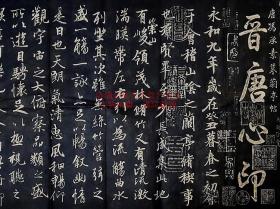 晉唐心印
永和九年歲在癸丑暮春之初會
于會稽山陰之蘭亭脩稧事
也群賢畢至少長咸集此地
有崇山峻領茂林脩竹又有清流激
湍暎帶左右引以為流觴曲水
列坐其次雖無絲竹管弦之
盛一觴一詠亦足以暢敘幽情
是日也天朗氣清惠風和暢仰
觀宇宙之大俯察品類之盛
所以遊目騁懷足以極視聽之